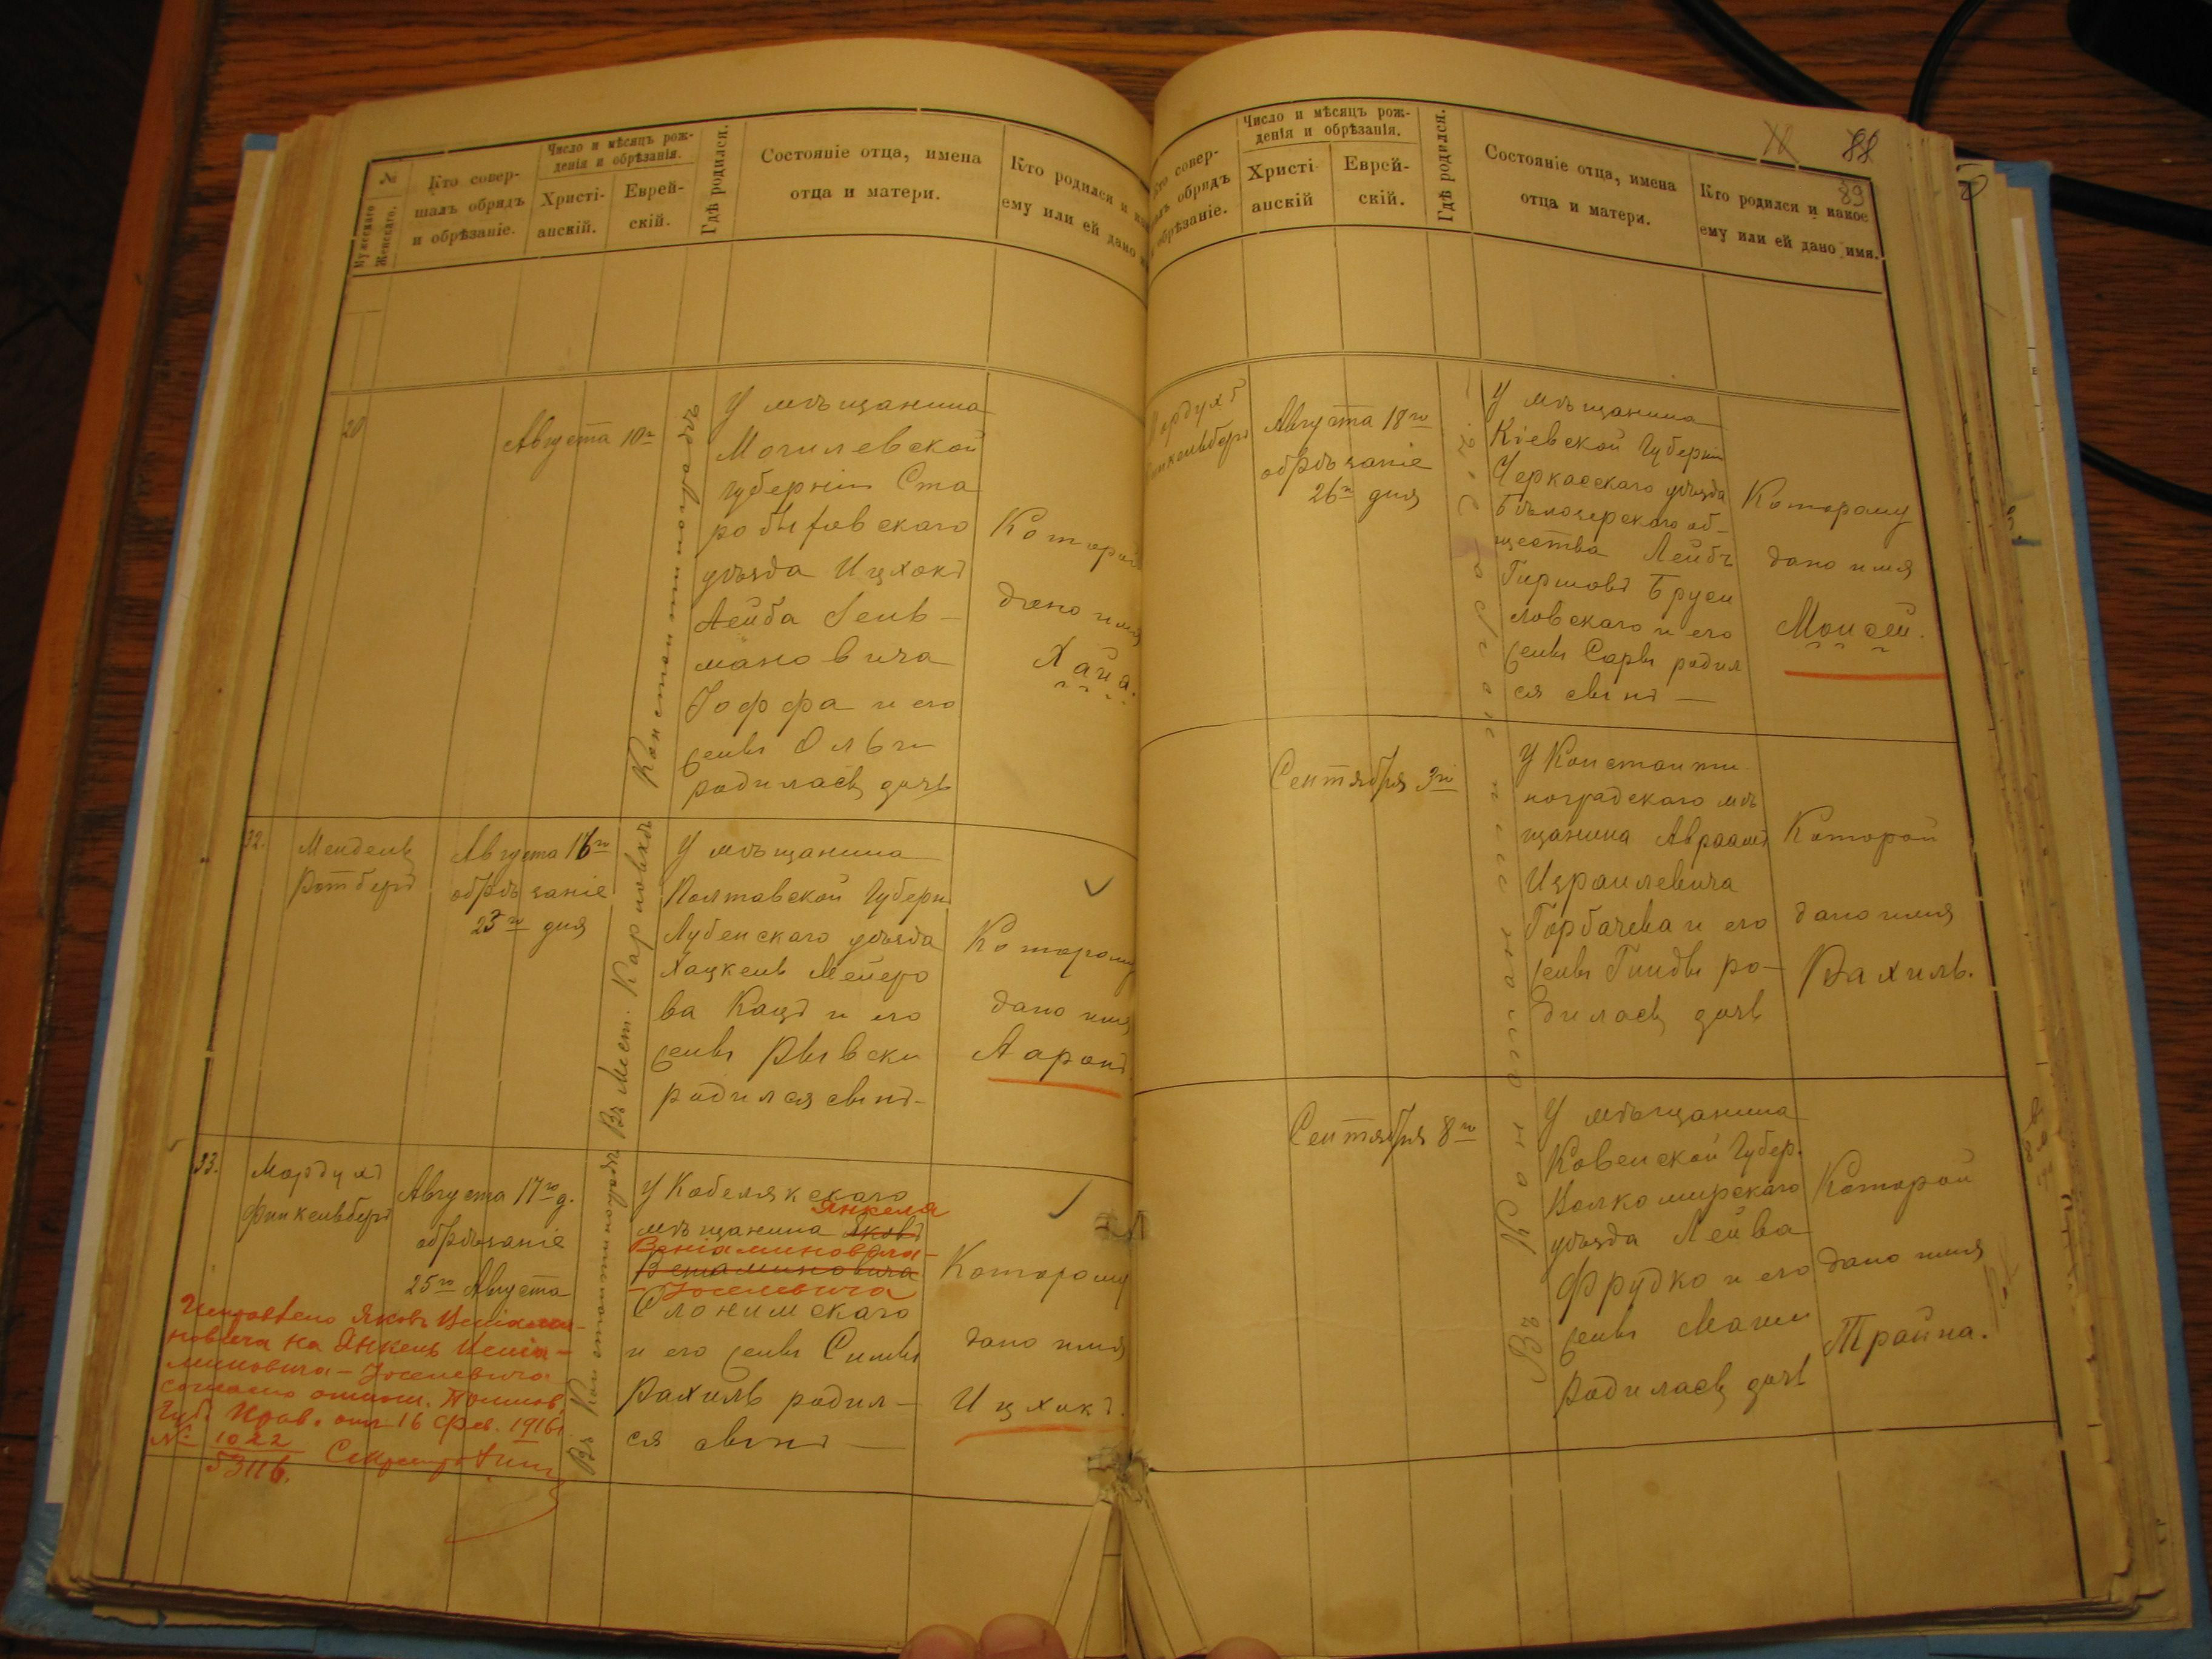 №
Мужескаго
Женскаго.
Кто совер-
шалъ обрядъ
и обрѣзаніе.
Число и мѣсяцъ рож-
денія и обрѣзанія.
Христі-
анскій.
Еврей-
скій.
Гдѣ родился.
Состояніе отца, имена
отца и матери.
Кто родился и как
ему или ей дано и
20
Августа 10го
Константиноградъ
У мѣщанина
Могилевской
губерніи Ста
робыховскаго
уѣзда Ицхокъ
Лейба
мановича
Іоффа и его
жены Ольги
родилась дочь
Которой
дано имя
Хана.
32.
Мендель
Ротбергъ
Августа 16го
обрѣзаніе
23го дня
Въ Мест. Карловкѣ
У мѣщанина
Полтавской Губерн
Лубенскаго уѣзда
Хацкель Мееро
ва Кацъ и его
жены Рывски
родился сынъ-
Которому
дано имя
Ааронъ
33.
Мордухъ
Финкельбергъ
Августа 17го д.
обрѣзаніе
25го Августа
Въ Константиноградѣ
У Кобелякскаго
Янкеля
мѣщанина Яковъ
Веніаминовича-
Веніаминовича
-Іоселевича
Слонимскаго
и его жены Симы
Рахиль родил-
ся сынъ —
Которому
дано имя
Ицхокъ.
Исправлено Яковъ Веніами-
новича на Янкель Веніа-
миновича-Іоселевича
согласно Полтов.
Губ. Прав. от 16 Фев. 1916
№ 1022
53116.
88
89
Кто совер-
шалъ обрядъ
обрѣзаніе.
Число и мѣсяцъ рож-
денія и обрѣзанія.
Христі-
анскій
Еврей-
скій.
Гдѣ родился.
Состояніе отца, имена
отца и матери.
Кто родился и какое
ему или ей дано имя.
Мордухъ
Финкельбергъ
Августа 18го
обрѣзаніе
26го дня
У мѣщанина
Кіевской Губерніи
Черкасскаго уѣзда
Бѣлозерскаго об-
щества Лейбъ
Гиршовъ Бруси
ловскаго и его
жены Сары родил
ся сынъ —
Которому
дано имя
Моисей.
Сентября 3го
У Константи
ноградскаго мѣ
щанина Авраамъ
Израилевича
Горбачева и его
жены Гинды ро-
дилась дочь
Которой
дано имя
Рахиль.
Сентября 8го
У мѣщанина
Ковенской Губер.
Волкомирскаго
уѣзда Лейва
Фрудко и его
жены Маши
родилась дочь
Которой
дано имя
Трайна.